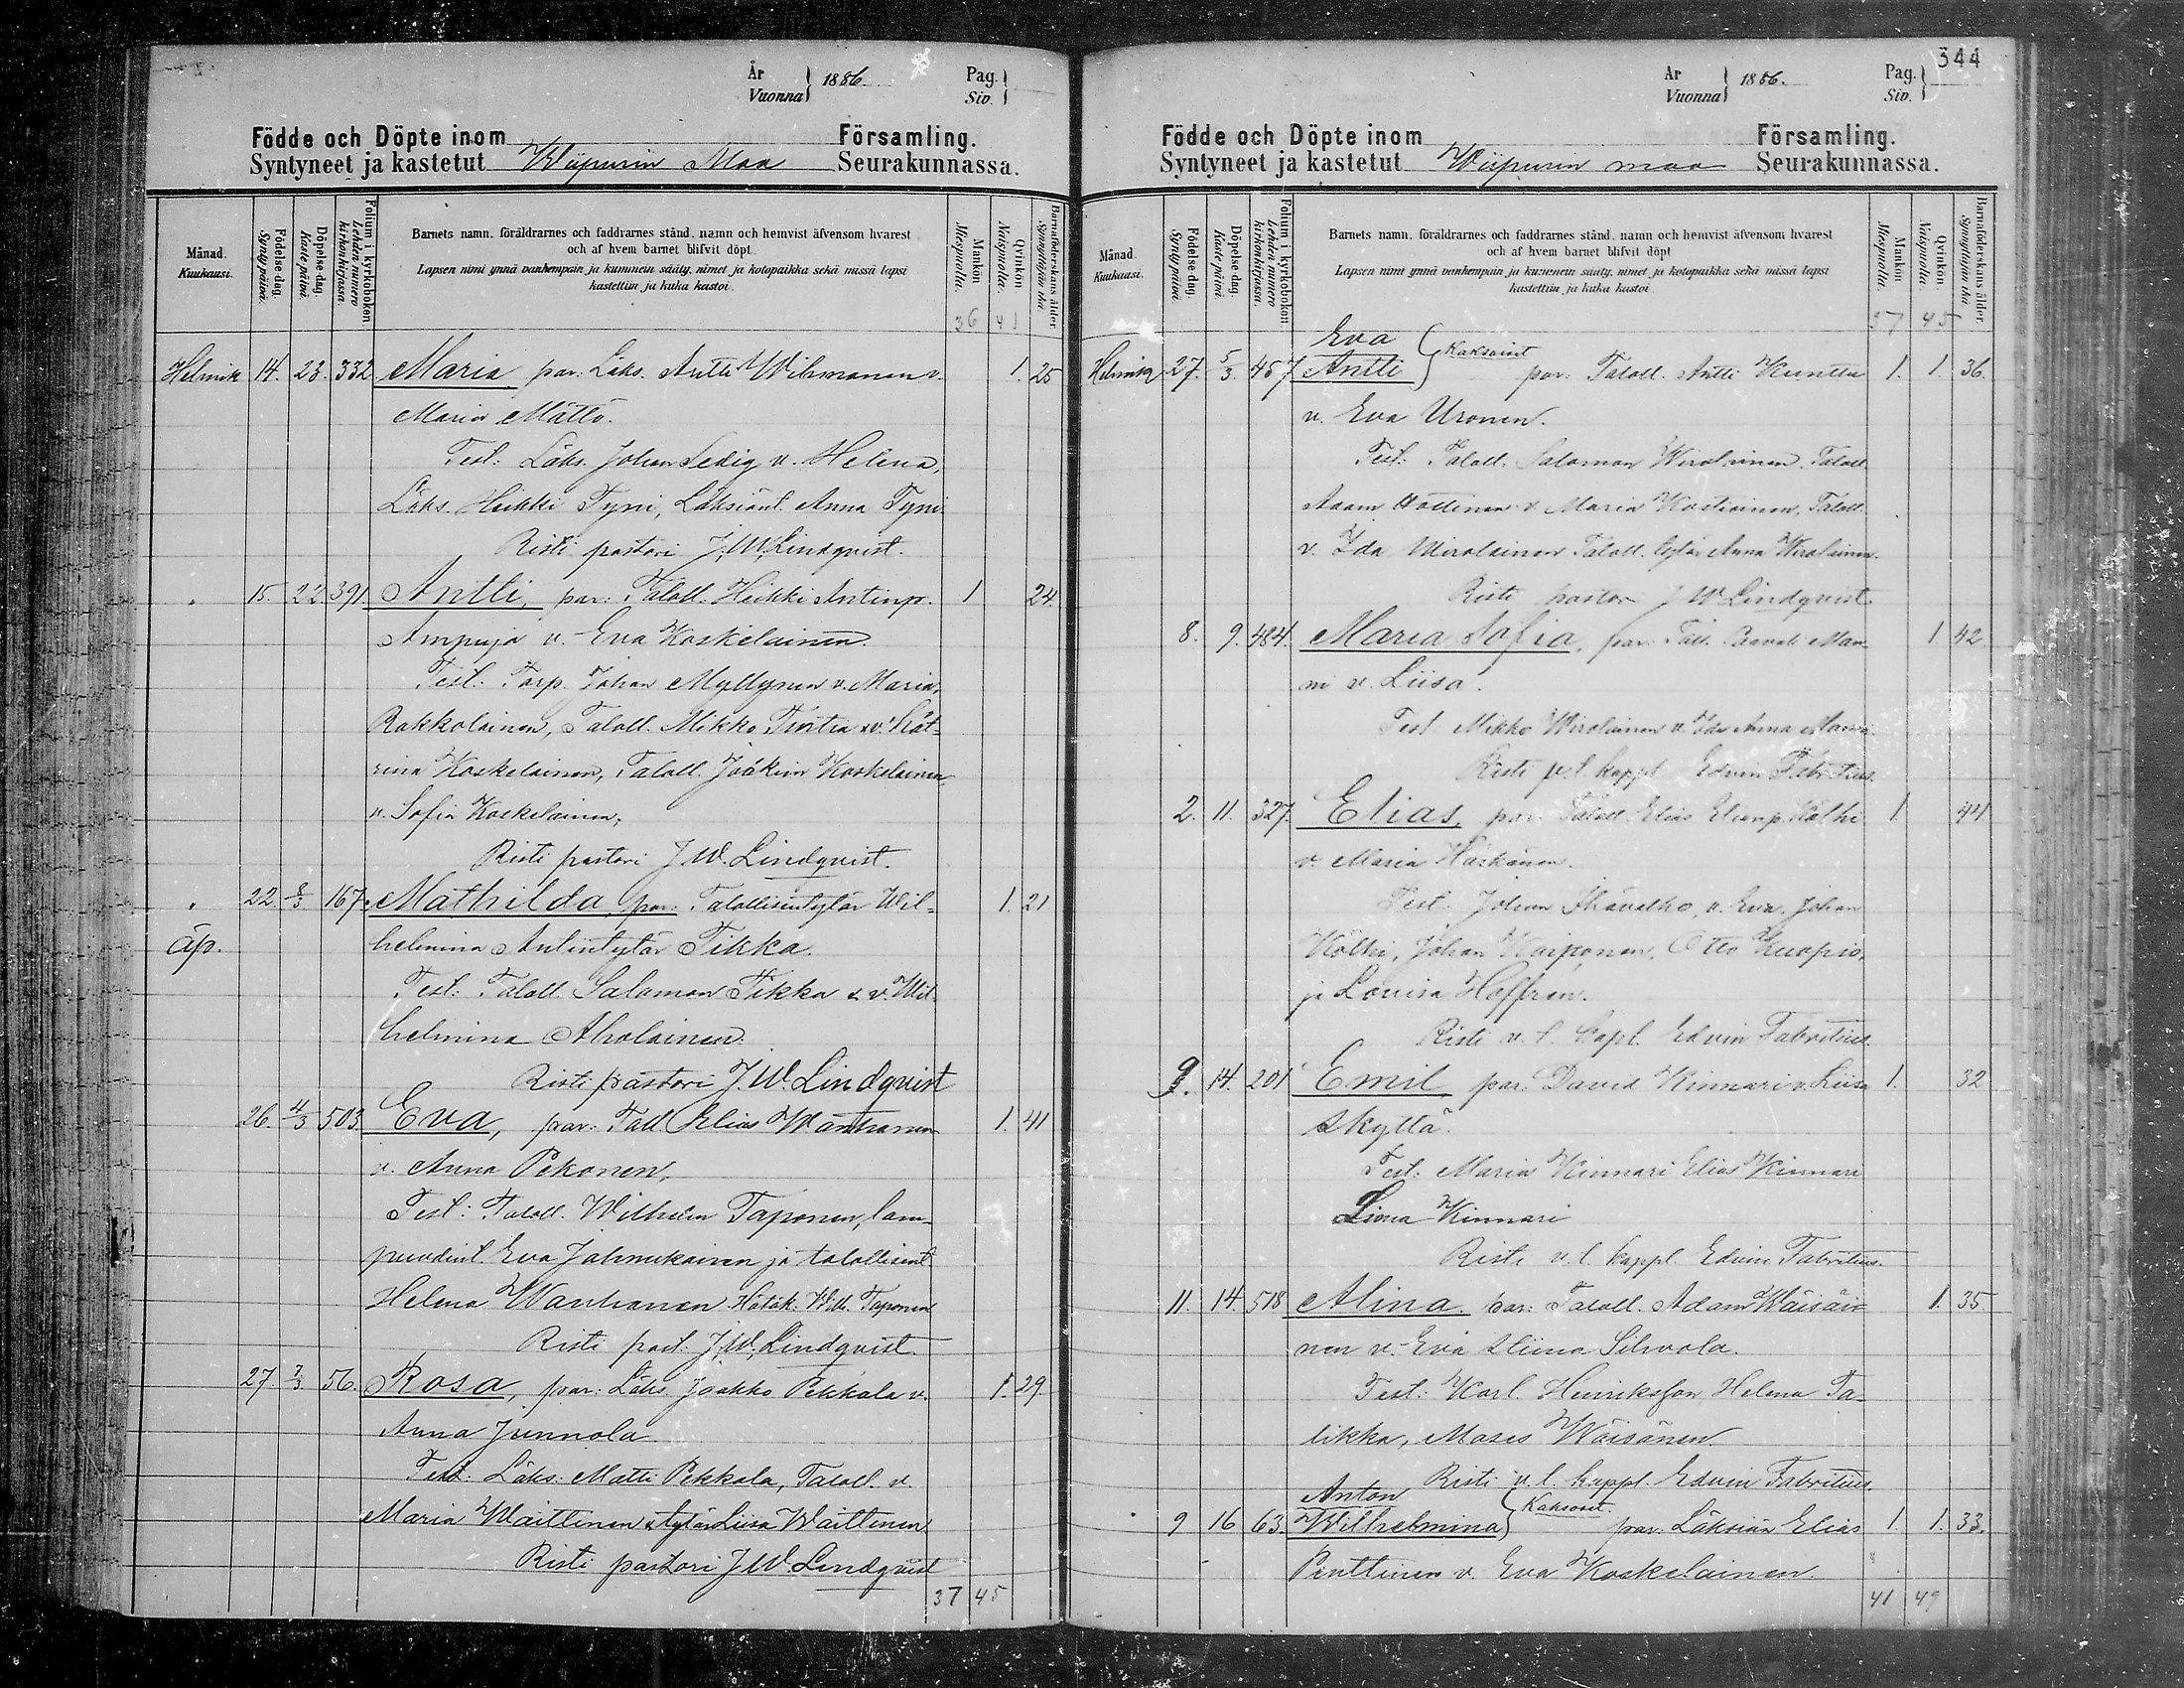 År
Vuonna } 1886.
Pag.
Siv. }
Födde och Döpte inom Församling.
Syntyneet ja kastetut Wiipurin Maa Seurakunnassa.
Månad.
Kuukausi.
Födelse dag.
Syntypäivä.
Döpelse dag.
Kastepäivä.
Folium i kyrkoboken
Lehden numero
kirkonkirjassa.
Barnets namn, föräldrarnes och faddrarnes stånd, namn och hemvist äfvensom hvarest
och af hvem barnet blifvit döpt.
Lapsen nimi ynnä vanhempain ja kummein sääty, nimet ja kotopaikka sekä missä lapsi
kastettiin ja kuka kastoi.
Mankön
Miespuolia.
Qvinkön
Naispuolia.
Barnaföderskans ålder
Synnyttäjän ikä.
36 41
Helmik 14. 23. 332 Maria par: Läks. Antti Wihmanen v. 1. 25
Maria Mättö.
Test: Läks. Johan Sedig v. Helena,
Läks. Heikki Tyni, Läksiänt. Anna Tyni
Risti pastori J.W. Lindqvist.
" 15. 22 391 Antti, par: Taloll. Heikki Antinp. 1 24.
Ampuja v. Eva Koskelainen.
Test: Torp. Johan Myllynen v. Maria,
Rakkolainen, Taloll. Mikko Tintra v. Kat=
rina Koskelainen, Taloll. Joakim Koskelainen,
v. Sofia Koskelainen,
Risti pastori J.W. Lindqvist.
" 22. 8/3 167. Mathilda par: Talollisentytär Wil= 1. 21
äp. helmina Antintytär Tikka.
Test: Taloll. Salamon Tikka & v. Wil
helmina Aholainen.
Risti pastori J.W. Lindqvist
26. 4/3 503. Eva, par: Tall. Elias Wanhanen 1. 41
v. Anna Pekonen,
Test: Taloll. Wilhelm Taponen, lam=
puodint. Eva Jahnukainen ja talollisent
Helena Wanhanen Hätäk. Wilh. Taponen
Risti past: J.W. Lindqvist.
27. 7/3 56. Rosa, par: Läks. Jaakko Pekkala v. 1. 29.
Anna Junnola.
Test: Läks: Matti Pekkala, Taloll. v.
Maria Waittinen & tytär Liisa Waittinen
Risti pastori J.W. Lindqvist
37 45
344
År
Vuonna } 1886.
Pag.
Siv. }
Födde och Döpte inom Församling.
Syntyneet ja kastetut Wiipurin maa Seurakunnassa.
Månad.
Kuukausi.
Födelse dag.
Syntypäivä.
Döpelse dag.
Kastepäivä.
Folium i kyrkoboken
Lehden numero
kirkonkirjassa.
Barnets namn, föräldrarnes och faddrarnes stånd, namn och hemvist äfvensom hvarest
och af hvem barnet blifvit döpt
Lapsen nimi ynnä vanhempain ja kummein sääty, nimet ja kotopaikka sekä missä lapsi
kastettiin ja kuka kastoi.
Mankön
Miespuolia.
Qvinkön.
Naispuolia.
Barnaföderskans ålder.
Synnyttäjän ikä.
37 45
Eva
Helmik 27. 5/3. 457 Antti } Kaksoiset par: Taloll. Antti Kuntta 1. 1. 36.
v. Eva Uronen.
Test: Taloll. Salomon Wirolainen, Taloll.
Adam Hottinen v. Maria Kostiainen, Taloll.
v. Ida Wirolainen Taloll. tytär Anna Wirolainen.
Risti pastori J W Lindqvist
8. 9. 484. Maria Sofia, par: Tall. Paavali Man= 1. 42
ni v. Liisa.
Test: Mikko Wirolainen v. Ida Anna Manni
Risti v.t. kappl. Edvin Fabritius.
2. 11. 327. Elias, par: Taloll. Elias Elianp. Kölhi 1. 44
v. Maria Härkönen.
Test: Johan v. Eva, Johan
Kölhi, Johan Kaiponen, Otto Kuopio,
ja Lovisa Hoffren.
Risti v. t. kapl. Edvin Fabritius
9. 14. 201 Emil par: David Kinnari v. Liisa 1. 32
Skyttä.
Test: Maria Kinnari Elias Kinnari
Liena Kinnari
Risti v.t. kappl. Edvin Fabritius.
11. 14. 518 Alina par: Taloll. Adam Wäisäi= 1. 35.
nen v. Eva Stiina Silvola.
Test: Karl. Henriksson, Helena Ta=
likka, Moses Wäisänen.
Risti v.t. kappl. Edvin Fabritius.
Anton
9 16 63. Wilhelmina } Kaksoset. par: Läksiän Elias 1. 1. 33.
Penttinen v. Eva Koskelainen.
41 49